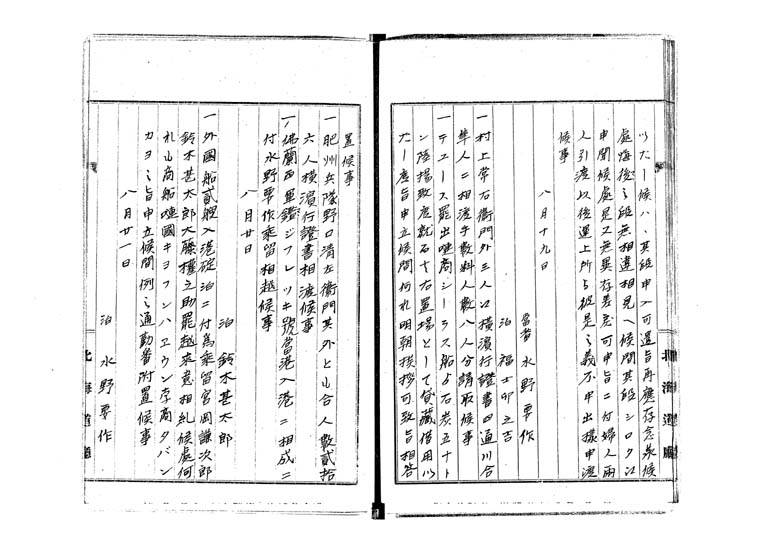 いたし候ハヽ其段申入可還旨再應存念承候
處悔後之段無相違相見へ候間其段シロタ江
申聞候處是又無異存差戻可申旨ニ付婦人兩
人引渡以後運上所ゟ彼是之義不申出様申渡
候事
八月十九日
當番 水野要作
泊 福士卯之吉
一村上常右衛門外三人江横濱行證書四通川合
隼人ニ相渡手数料人数八人分請取候事
一テユース罷出唯商シーラス船ゟ石炭五十ト
ン陸揚致度就而ハ右置場として貸藏借用い
たし度旨申立候間何れ明朝挨拶可致旨相答
置候事
一肥州兵隊野口清左衛門其外と山合人数貳拾
六人横濱行證書相渡候事
一佛蘭西軍艦ジフレツキ號當港入港ニ相成ニ
付水野要作乘留相越候事
八月廿日
泊 鈴木甚太郎
一外國船貳艘入港碇泊ニ付為乘留宮岡謙次郎
鈴木甚太郎大藤權之助罷越來意相糺候處何
れ山商船唯國キヨフンハエウン孛商タバン
カヨミ旨申立候間例之通勤番附置候事
八月廿一日
泊 水野要作
北海道廳
北海道廳